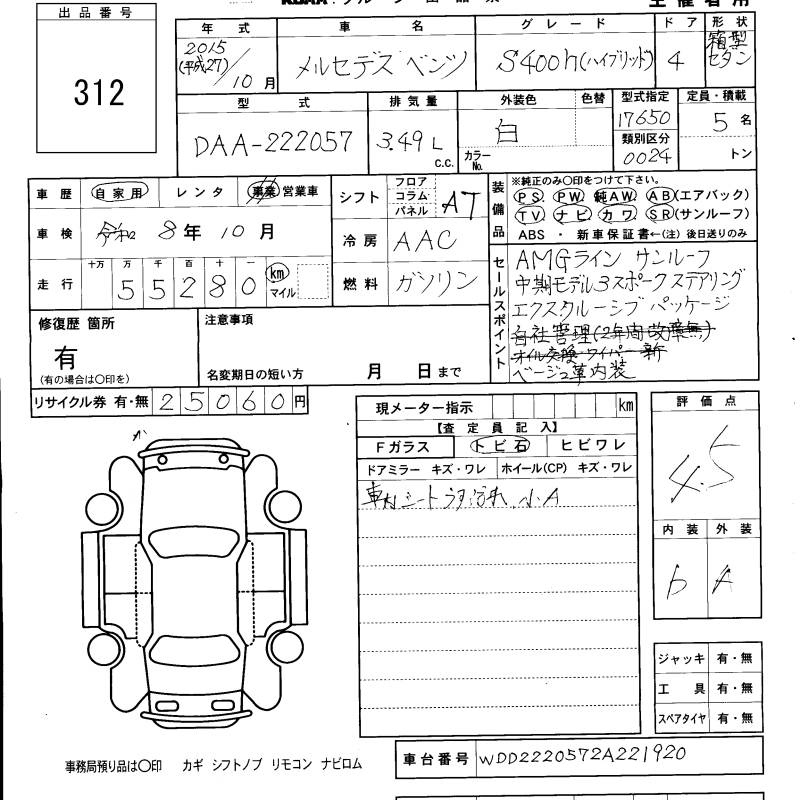 出品番号
312
年式 車名 グレード ドア 形状
2015(平成27)/10月 メルセデス ベンツ S400h(ハイブリッド) 4 箱型 セダン
型式 排気量 外装色 色替 型式指定 定員・積載
DAA-222057 3.49L c.c. 白 カラーNo. 17650 5名
類別区分
0024 トン
車歴 自家用 レンタ 事業 営業車
シフト フロア コラム パネル AT
装備品 ※純正のみ○印をつけて下さい。
PS PW 純AW AB(エアバック)
TV ナビ カワ SR(サンルーフ)
ABS ・ 新車保証書←(注)後日送りのみ
車検 令和 8年 10月
冷房 AAC
走行 十万 万 千 百 十 一 km マイル
55280
燃料 ガソリン
セールスポイント
AMGライン サンルーフ
中期モデル3スポークステアリング
エクスクルーシブ パッケージ
自社管理(2年間故障無)
オイル交換 ワイパー 新
ベージュ革内装
修復歴 箇所
有
(有の場合は○印を)
注意事項
名変期日の短い方 月 日まで
リサイクル券 有・無 25060円
現メーター指示 km
【査定員記入】
Fガラス トビ石 ヒビワレ
ドアミラー キズ・ワレ ホイール(CP) キズ・ワレ
車内シートうす汚れ、小A
評価点
4.5
内装 外装
b A
ジャッキ 有・無
工具 有・無
スペアタイヤ 有・無
車台番号 WDD2220572A221920
事務局預り品は○印 カギ シフトノブ リモコン ナビロム